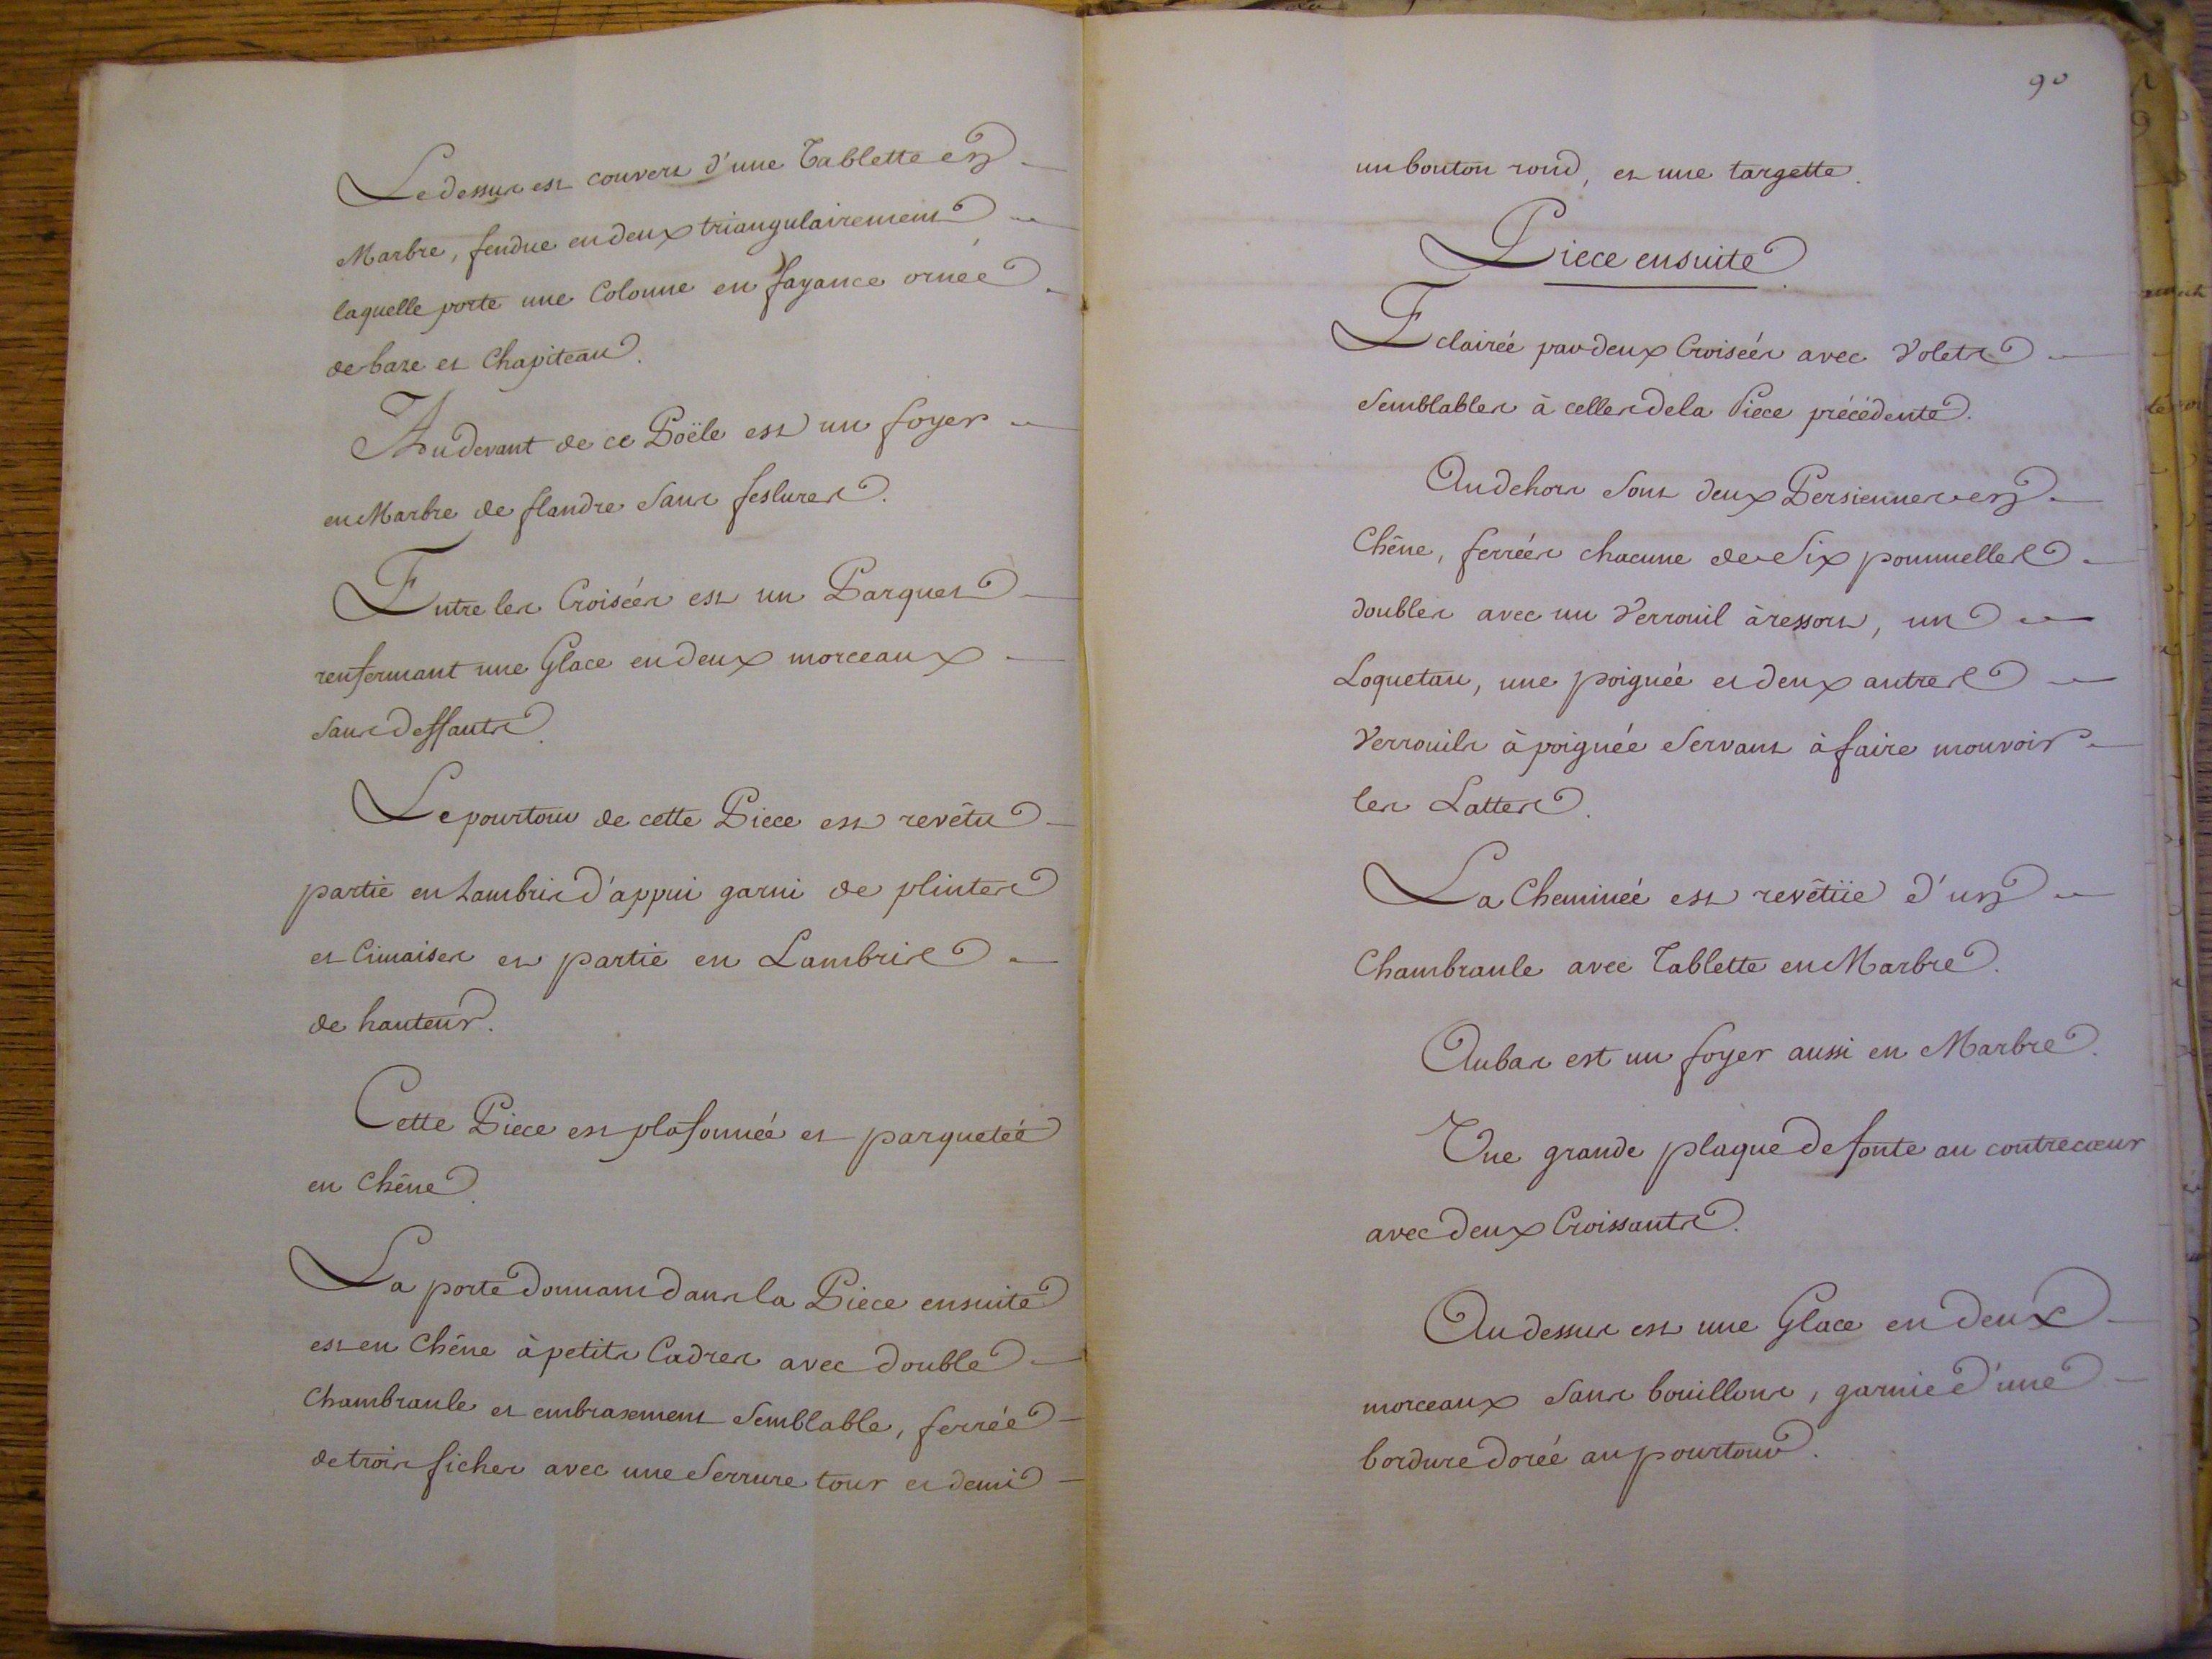 Le dessus est couvert d'une Tablette en
Marbre, fendue en deux triangulairement
laquelle porte une Colonne en fayance ornée
de baze et Chapiteau.
Au devant de ce Poële est un foyer
en Marbre de flandre sans feslures.
Entre les Croisées est un Parquet
renfermant une Glace en deux morceaux
sans deffauts.
Le pourtour de cette Piece est revêtu
partie en Lambris d'appui garni de plintes
et Cimaises et partie en Lambris
de hauteur.
Cette Piece est plafonnée et parquetée
en Chêne.
La porte donnant dans la Piece ensuite
est en Chêne à petits Cadres avec double
Chambranle et embrasement Semblable, ferrée
de trois fiches avec une Serrure tour et demi
90
un bouton rond, et une targette.
Piece ensuite
Eclairée par deux Croisées avec Volets
Semblables à celles de la Piece précédente.
Au dehors Sont deux Persiennes en
Chêne, ferrées chacune de Six poummelles
doubles avec un Verrouil à ressort, un
Loquetau, une poignée et deux autres
Verrouils à poignée Servant à faire mouvoir
les Lattes.
La Cheminée est revêtüe d'un
Chambranle avec Tablette en Marbre.
Au bas est un foyer aussi en Marbre.
Une grande plaque de fonte au contrecœur
avec deux Croissants.
Au dessus est une Glace en deux
morceaux Sans bouillons, garnie d'une
bordure dorée au pourtour.